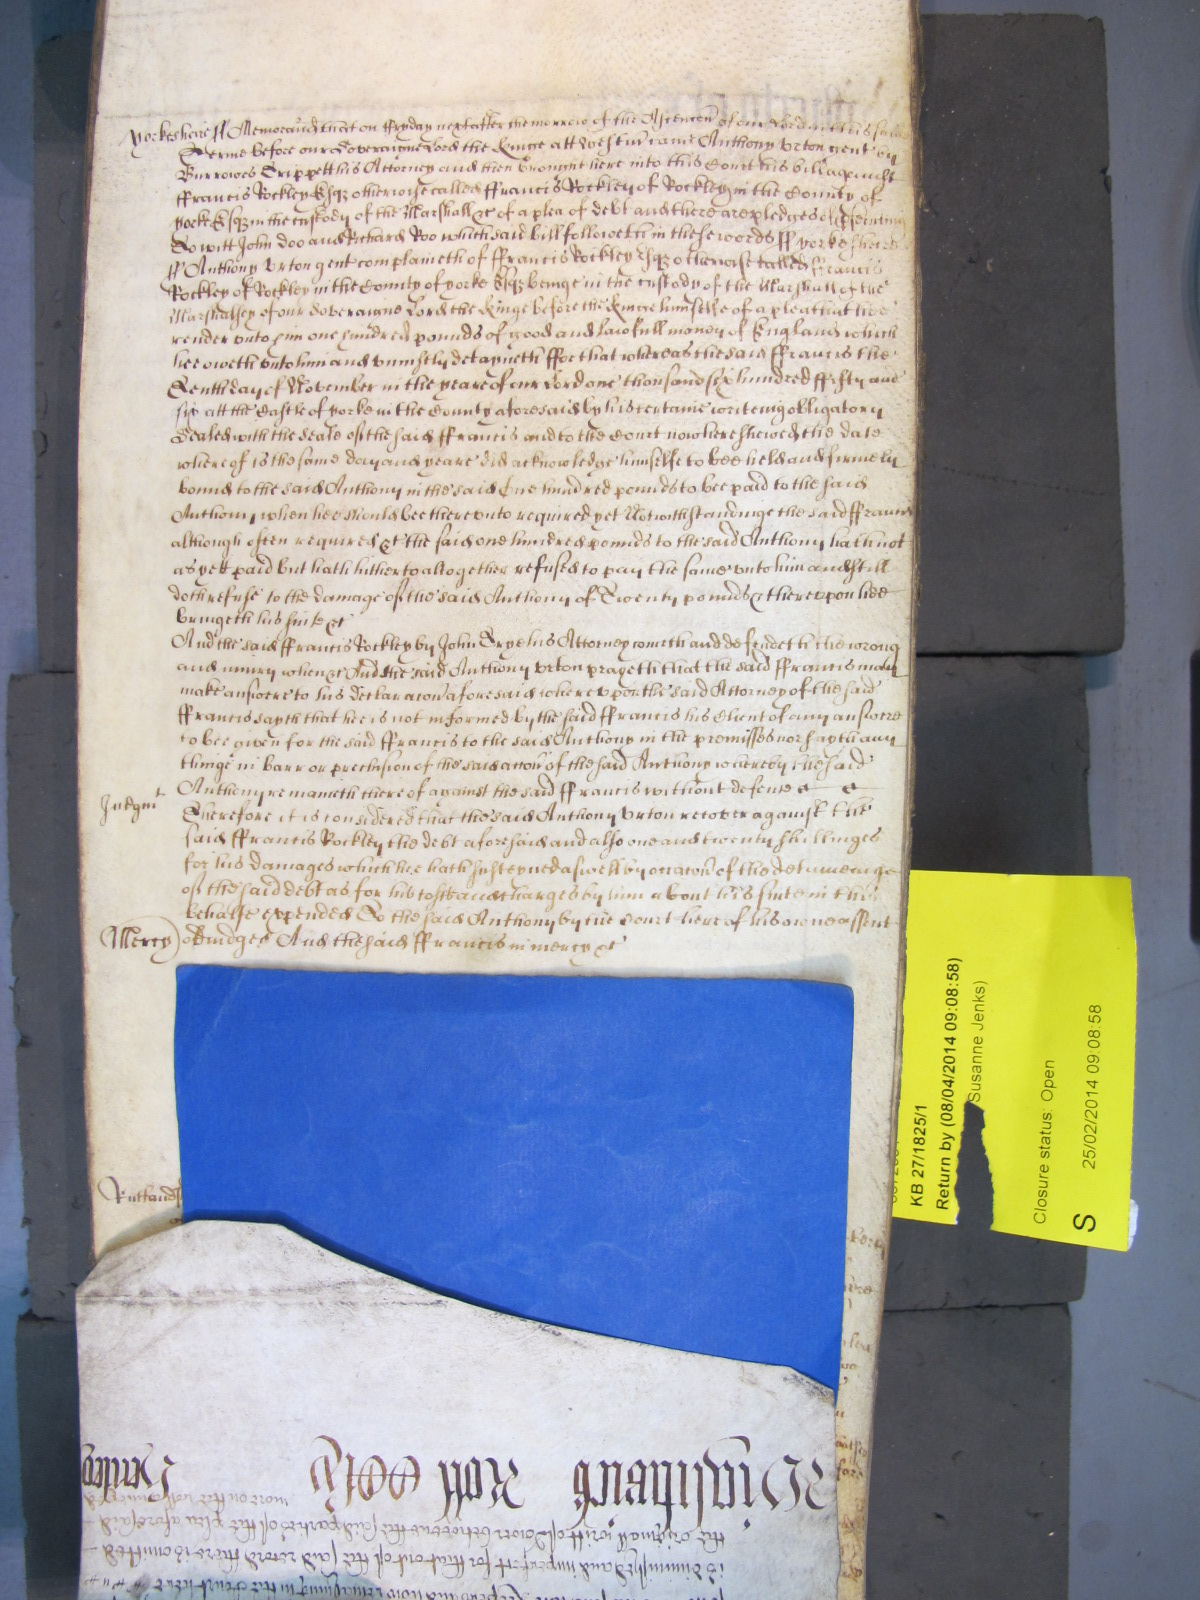 Yorkeshire ss Memorand that on ffryday next after the morrow of the Ascencon of our Lord in this same
Terme before our Soveraigne Lord the Kinge att Westm came Anthony Vrton gent by
Burrowes Trippett his Attorney and then brought here into this Court his bill against
ffrancis Rockley Esqz otherwise called ffrancis Rockley of Rockley in the County of
yorke Esqz in the custody of the Marshall &c of a plea of debt and there are pledges of prosecuting
To witt John Doo and Richard Roo which said bill followeth in these words ss yorkeshire
ss Anthony Vrton gent complaineth of ffrancis Rockley Esqz otherwise called ffrancis
Rockley of Rockley in the County of yorke Esqz beinge in the custody of the Marshall of the
Marshalsey of our Soveraigne Lord the Kinge before the Kinge himselfe of a plea that hee
render vnto him one hundred pounds of good and lawfull money of England which
hee oweth vnto him and vniustly detayneth ffor that whereas the said ffrancis the
Tenth day of November in the yeare of our Lord one thousand six hundred ffifty and
six att the Castle of yorke in the County aforesaid by his certaine writeing obligatory
Sealed with the seale of the said ffrancis and to the Court now here shewed the date
whereof is the same day and yeare did acknowledge himselfe to bee held and firmely
bound to the said Anthony in the said One hundred pounds to bee paid to the said
Anthony when hee should bee therevnto required yet Notwithstandinge the said ffrancis
although often required &c the said one hundred pounds to the said Anthony hath not
as yett paid but hath hitherto altogether refused to pay the same vnto him and still
doth refuse to the damage of the said Anthony of Twenty pounds & therevpon hee
bringeth his suite &c
And the said ffrancis Rockley by John Trye his Attorney cometh and defendeth the wrong
and iniury when &c And the said Anthony Vrton prayeth that the said ffrancis may
make answere to his declaracon aforesaid wherevpon the said Attorney of the said
ffrancis sayth that hee is not informed by the said ffrancis his Client of any answere
to bee given for the said ffrancis to the said Anthony in the premisses nor sayth any
thinge in barr or preclusion of the said accon of the said Anthony whereby the said
Anthony remaineth thereof against the said ffrancis without defence &c &c
Iudgmt
Therefore it is considered that the said Anthony Vrton recover against the
said ffrancis Rockley the debt aforesaid and also one and twenty shillinges
for his damages which hee hath susteyned aswell by occacon of the deteineinge
of the said debt as for his costs and charges by him about his suite in this
behalfe expended To the said Anthony by the Court here of his owne assent
Mercy
adiudged And the said ffrancis in mercy &c
Rutland ss
KB 27/1825/1
Return by (08/04/2014 09:08:58)
Susanne Jenks)
Closure status: Open
S
25/02/2014 09:08:58
Roll
more on the
the originall writt of Error betweene the said parties of the plea aforesaid
is diminished and imperfect for that out of the said record there is omitted